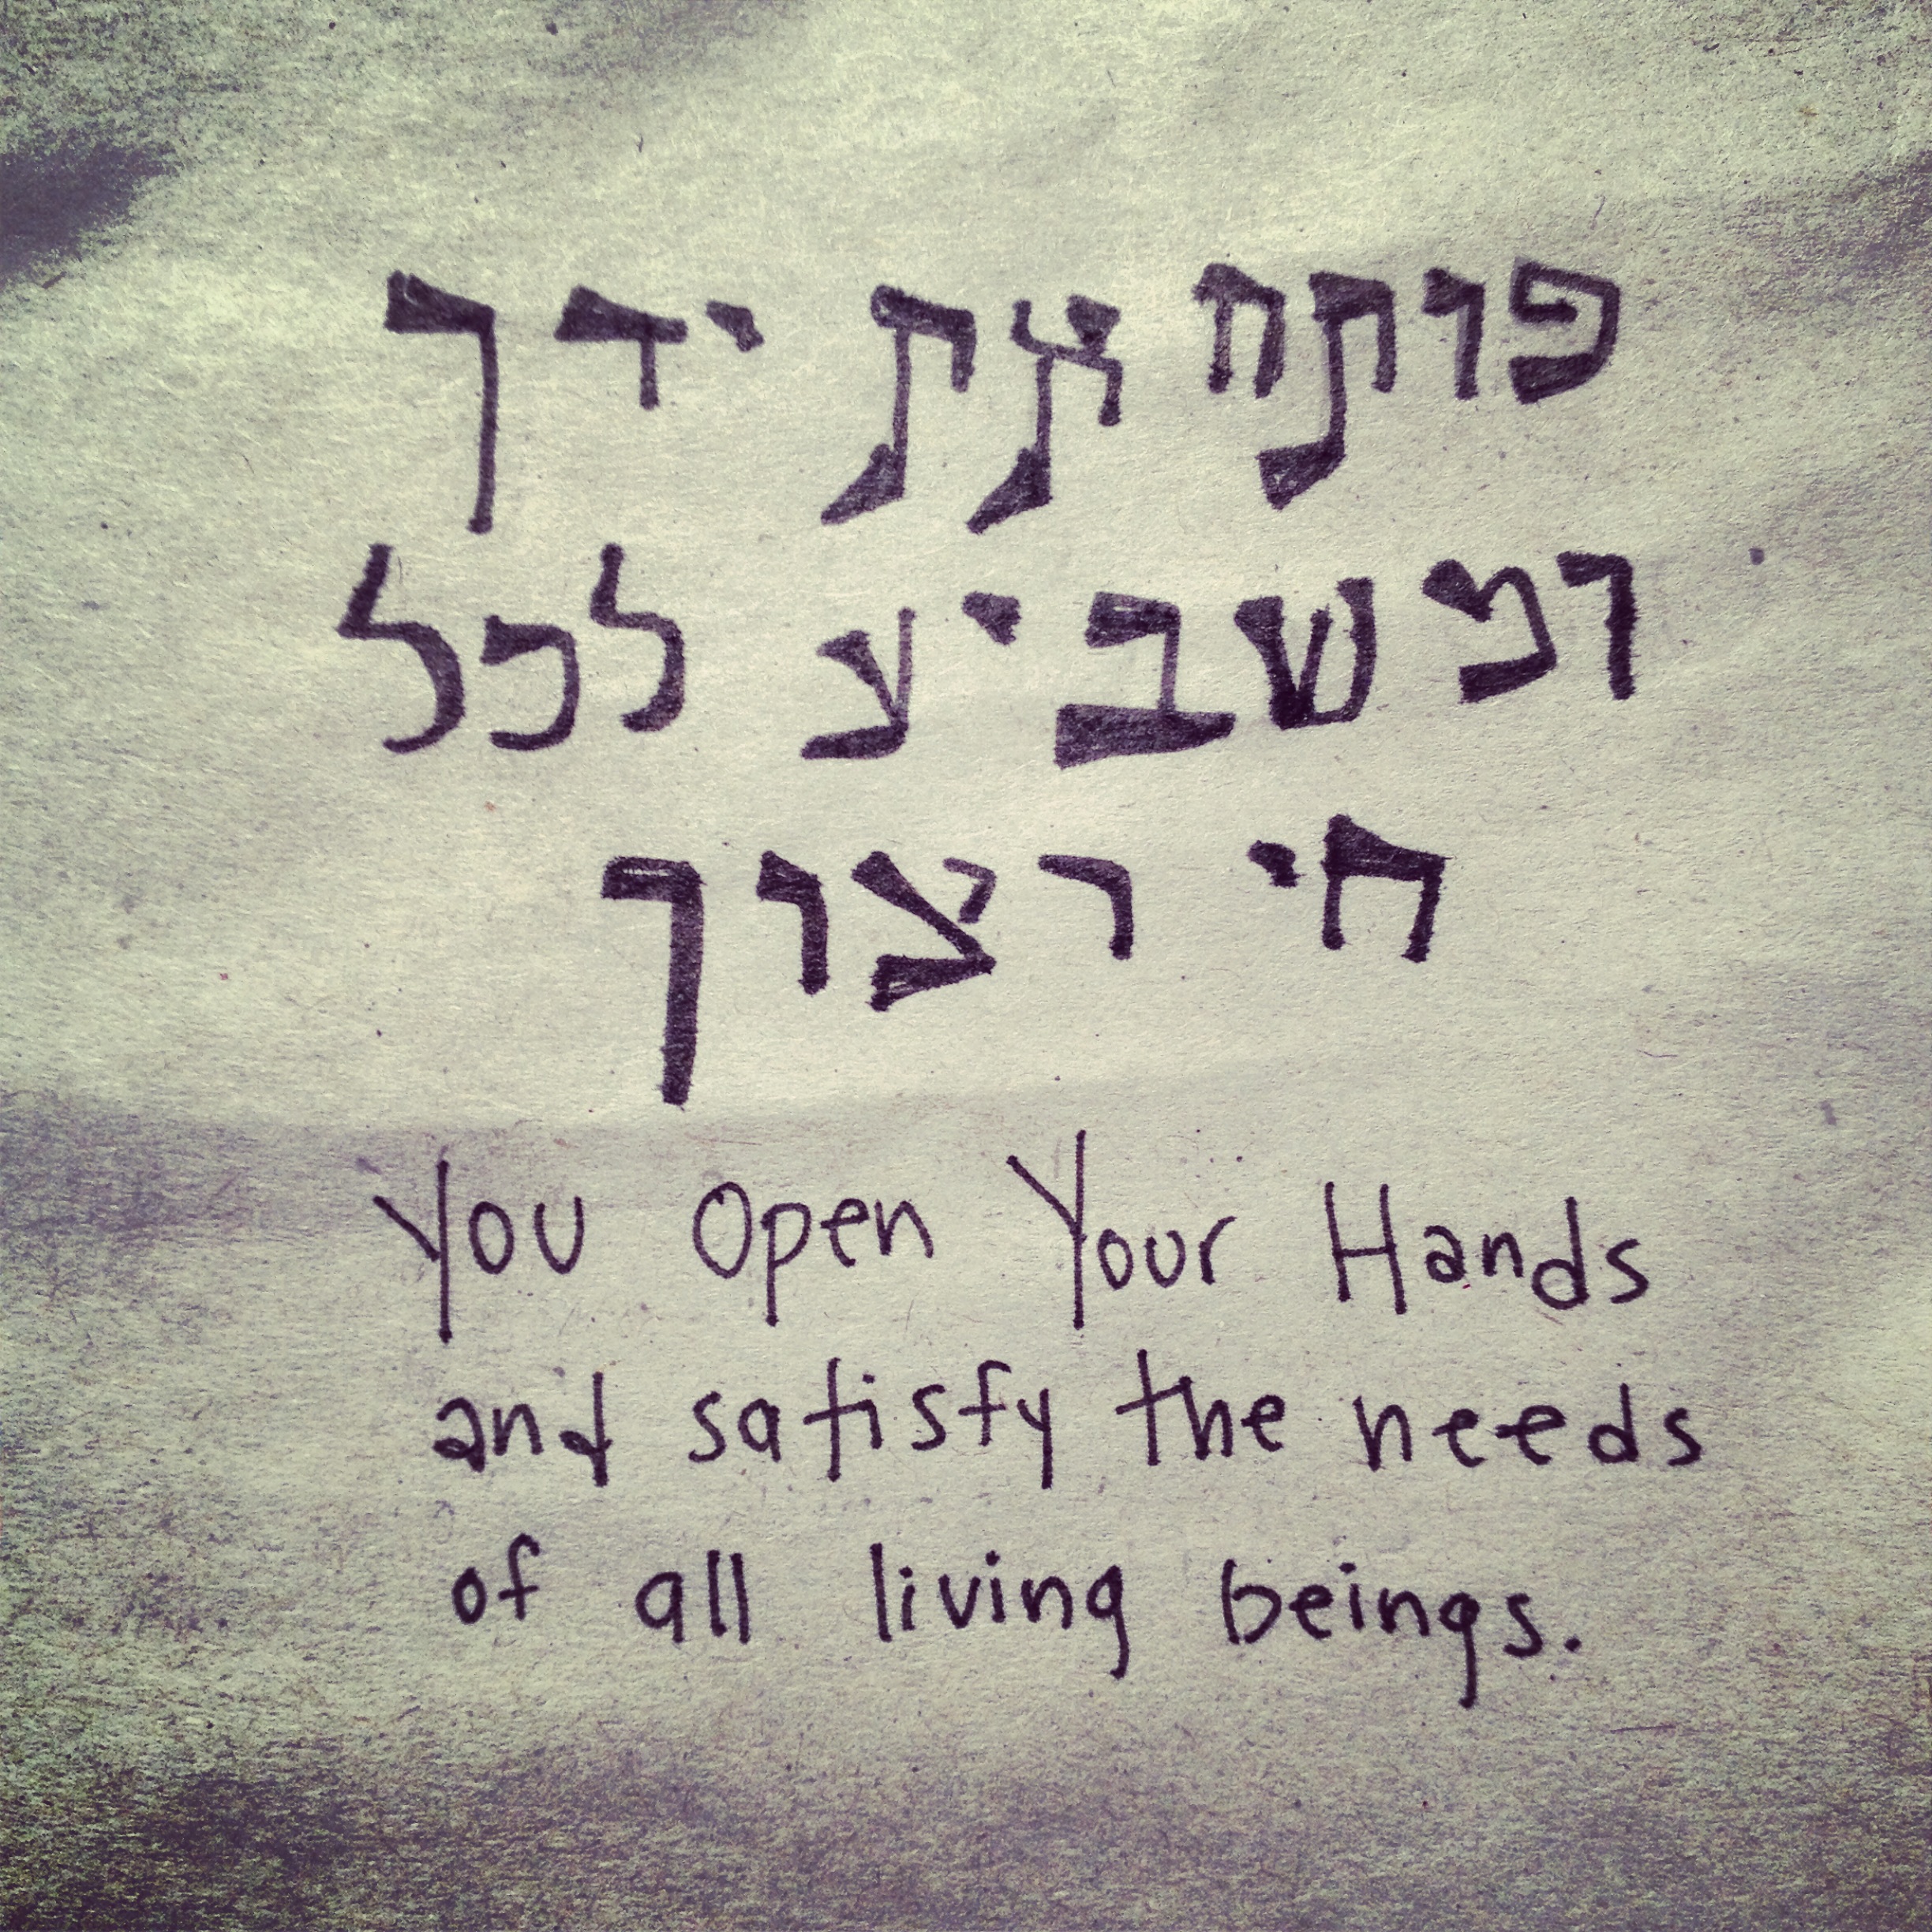 פותח את ידך
ומשביע לכל
חי רצוך
You Open Your Hands
and satisfy the needs
of all living beings.